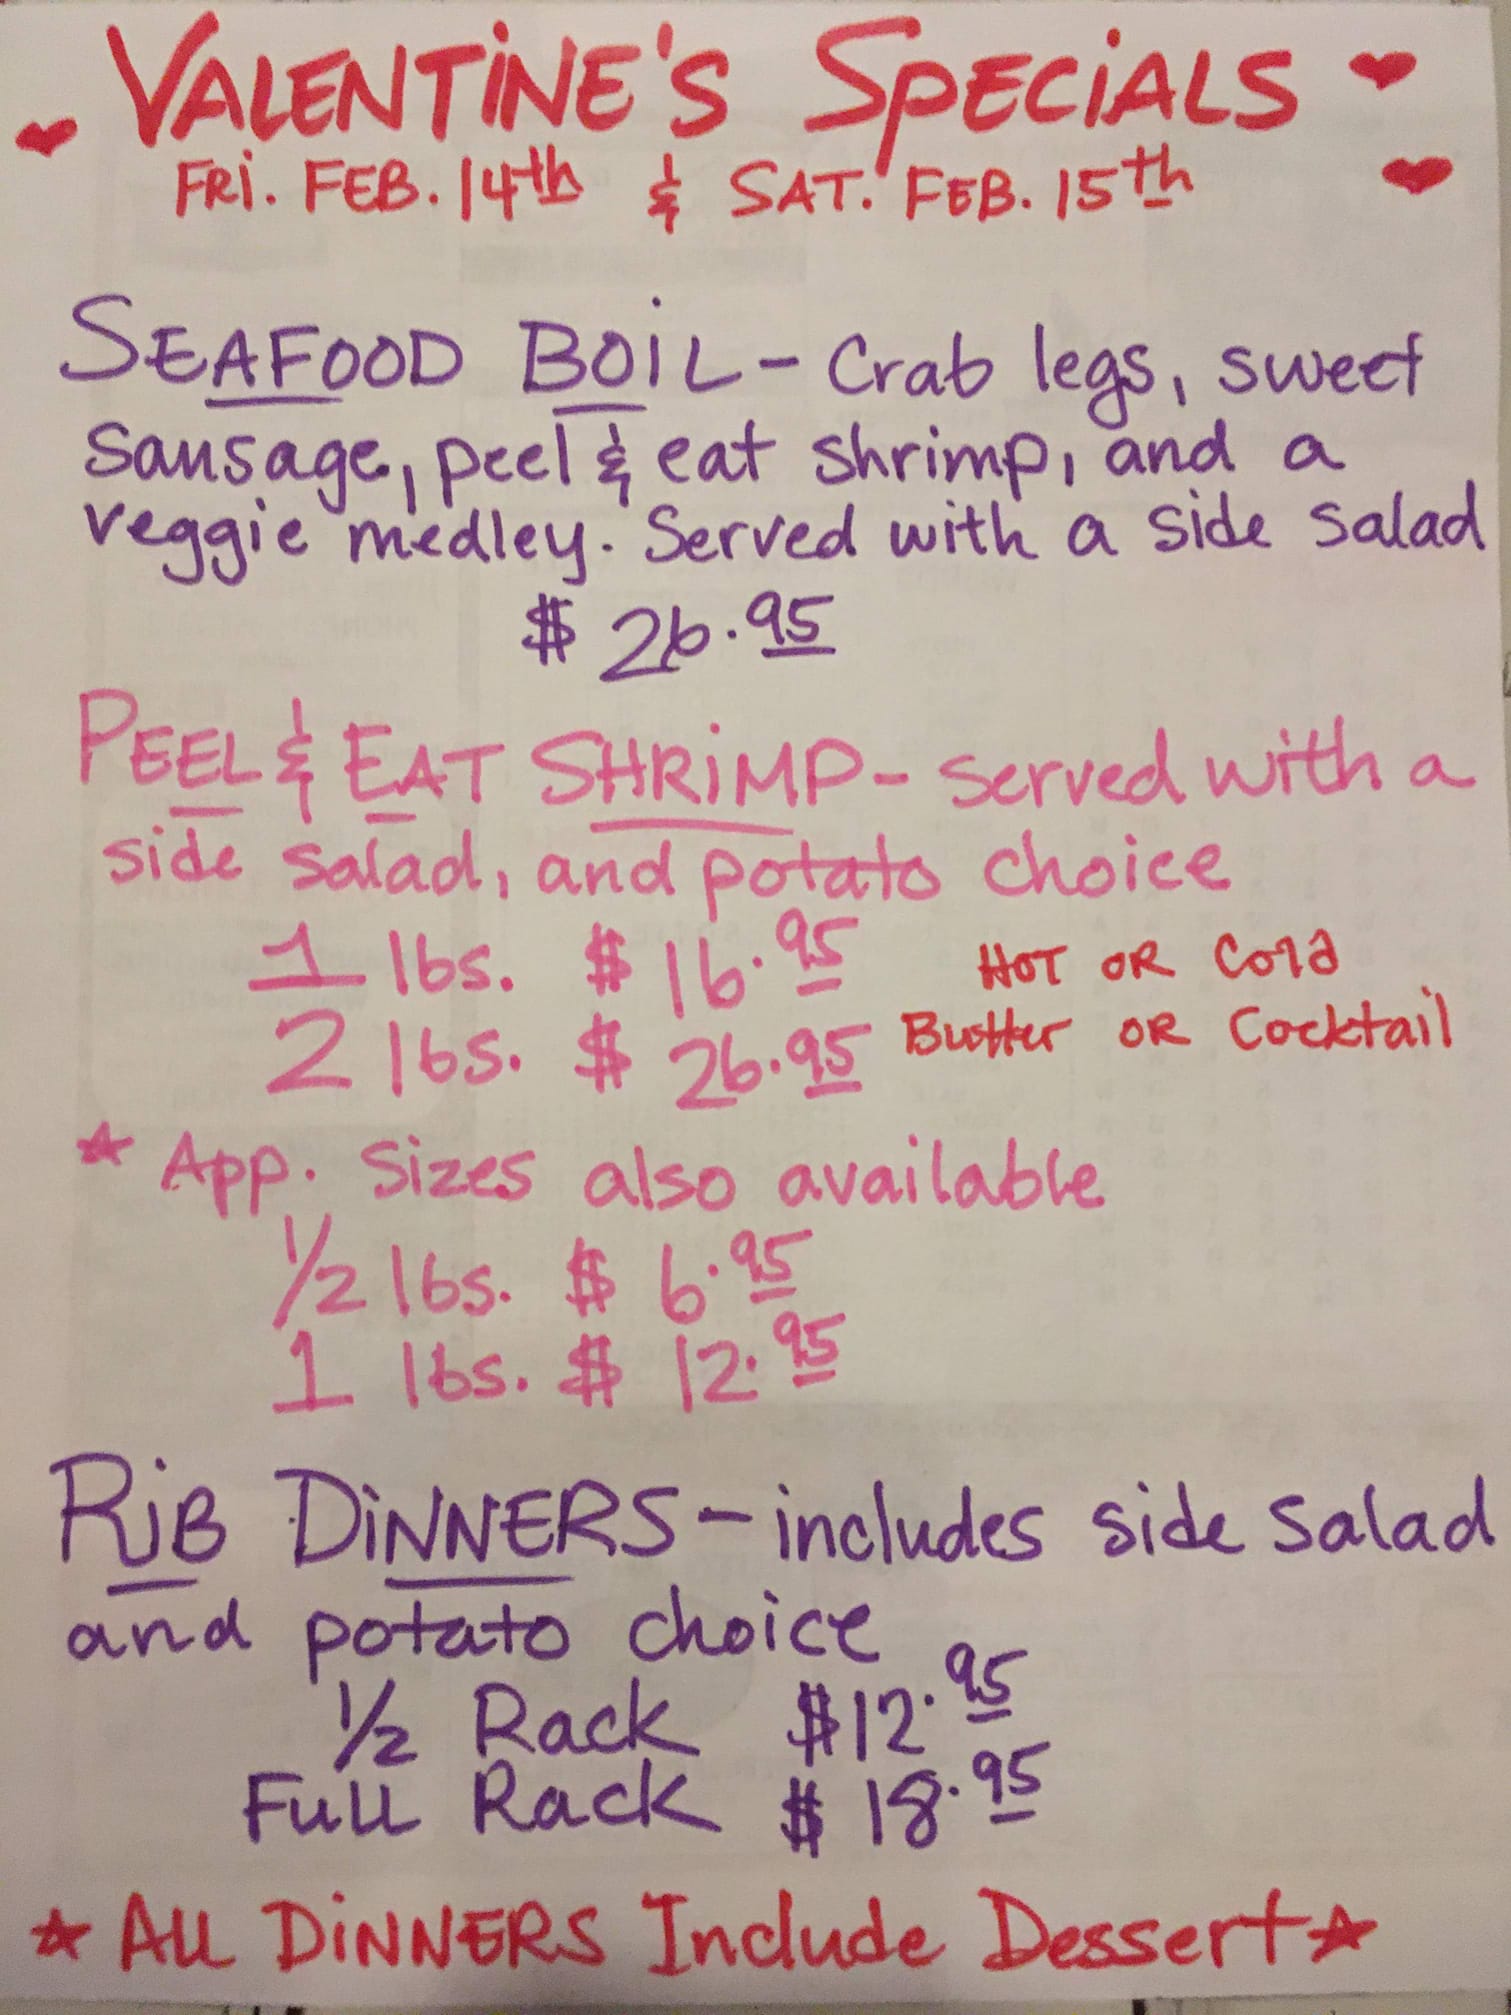 VALENTINE'S SPECIALS
FRI. FEB. 14th & SAT. FEB. 15th
SEAFOOD BOIL - Crab legs, sweet
sausage, peel & eat shrimp, and a
veggie medley. Served with a side salad
$ 26.95
PEEL & EAT SHRIMP - served with a
side salad, and potato choice
1 lbs. $ 16.95
2 lbs. $ 26.95
HOT OR Cold
Butter OR Cocktail
* App. Sizes also available
1/2 lbs. $ 6.95
1 lbs. $ 12.95
RIB DINNERS - includes side salad
and potato choice
1/2 Rack $12.95
Full Rack $ 18.95
* ALL DINNERS Include Dessert *